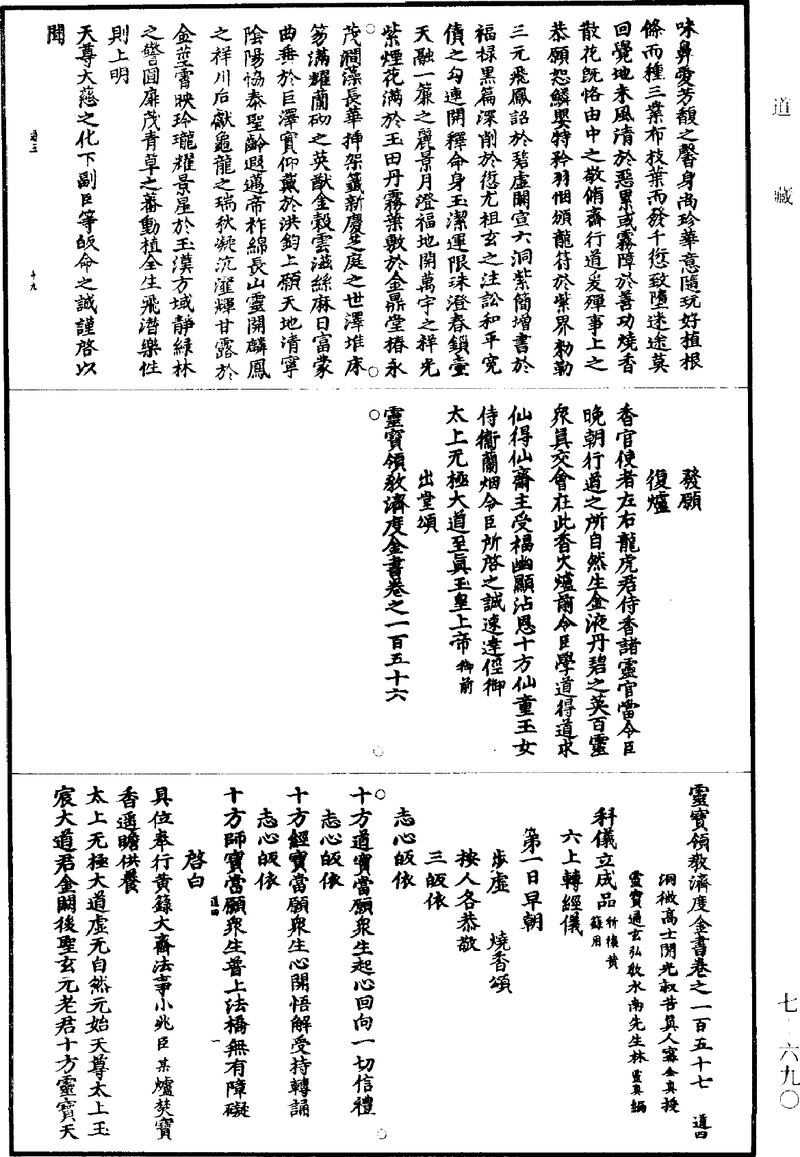 道藏
味鼻愛芳馥之馨身尚珍華意隨玩好植根
條而種三業布枝葉而發千愆致墮迷途莫
回覺地未風清於惡累或霧障於善功燒香
散花既恪由中之敬脩齋行道爰殫事上之
恭願恕鱗嬰特矜羽悃頒龍符於紫界勑勒
三元飛鳳詔於碧虛闡宣六洞紫簡增書於
福祿黑篇深削於愆尤祖玄之注訟和平冤
債之勾連開釋命身玉潔運限珠澄春鎖壼
天融一簾之麗景月澄福地開萬宇之祥光
紫煙花滿於玉田丹霧葉敷於金鼎堂椿永
茂澗藻長華揷架籤新慶芝庭之世澤堆床
笏滿耀蘭砌之英猷金穀雲滋絲麻日富蒙
曲垂於巨澤實仰戴於洪鈞上願天地清寧
陰陽恊泰聖齡遐邁帝祚綿長山靈開麟鳳
之祥川后獻龜龍之瑞秋凝沆瀣輝甘露於
金莖霄映玲瓏耀景星於玉漢方域靜綠林
之警圓扉茂青草之蕃動植全生飛潛樂性
則上明
天尊大慈之化下副臣等皈命之誠謹啓以
聞
道三
十九
發願
復爐
香官使者左右龍虎君侍香諸靈官當令臣
晚朝行道之所自然生金液丹碧之英百靈
衆眞交會在此香火爐前令臣學道得道求
仙得仙齋主受福幽顯沾恩十方仙童玉女
侍衞蘭烟令臣所啓之誠速達徑御
太上无極大道至眞玉皇上帝御前
出堂頌
靈寶領敎濟度金書卷之一百五十六
靈寶領敎濟度金書卷之一百五十七 道四
洞微高士開光救苦眞人甯全眞授
靈寶通玄弘敎水南先生林靈眞編
科儀立成品祈禳黃籙用
六上轉經儀
第一日早朝
步虛 燒香頌
按人各恭敬
三皈依
志心皈依
十方道寶當願衆生起心回向一切信禮
志心皈依
十方經寶當願衆生心開悟解受持轉誦
志心皈依
十方師寶當願衆生普上法橋無有障礙
道四
一
啓白
具位奉行黃籙大齋法事小兆臣某爐焚寶
香遥瞻供養
太上无極大道虛无自然元始天尊太上玉
宸大道君金闕後聖玄元老君十方靈寶天
七-六九〇